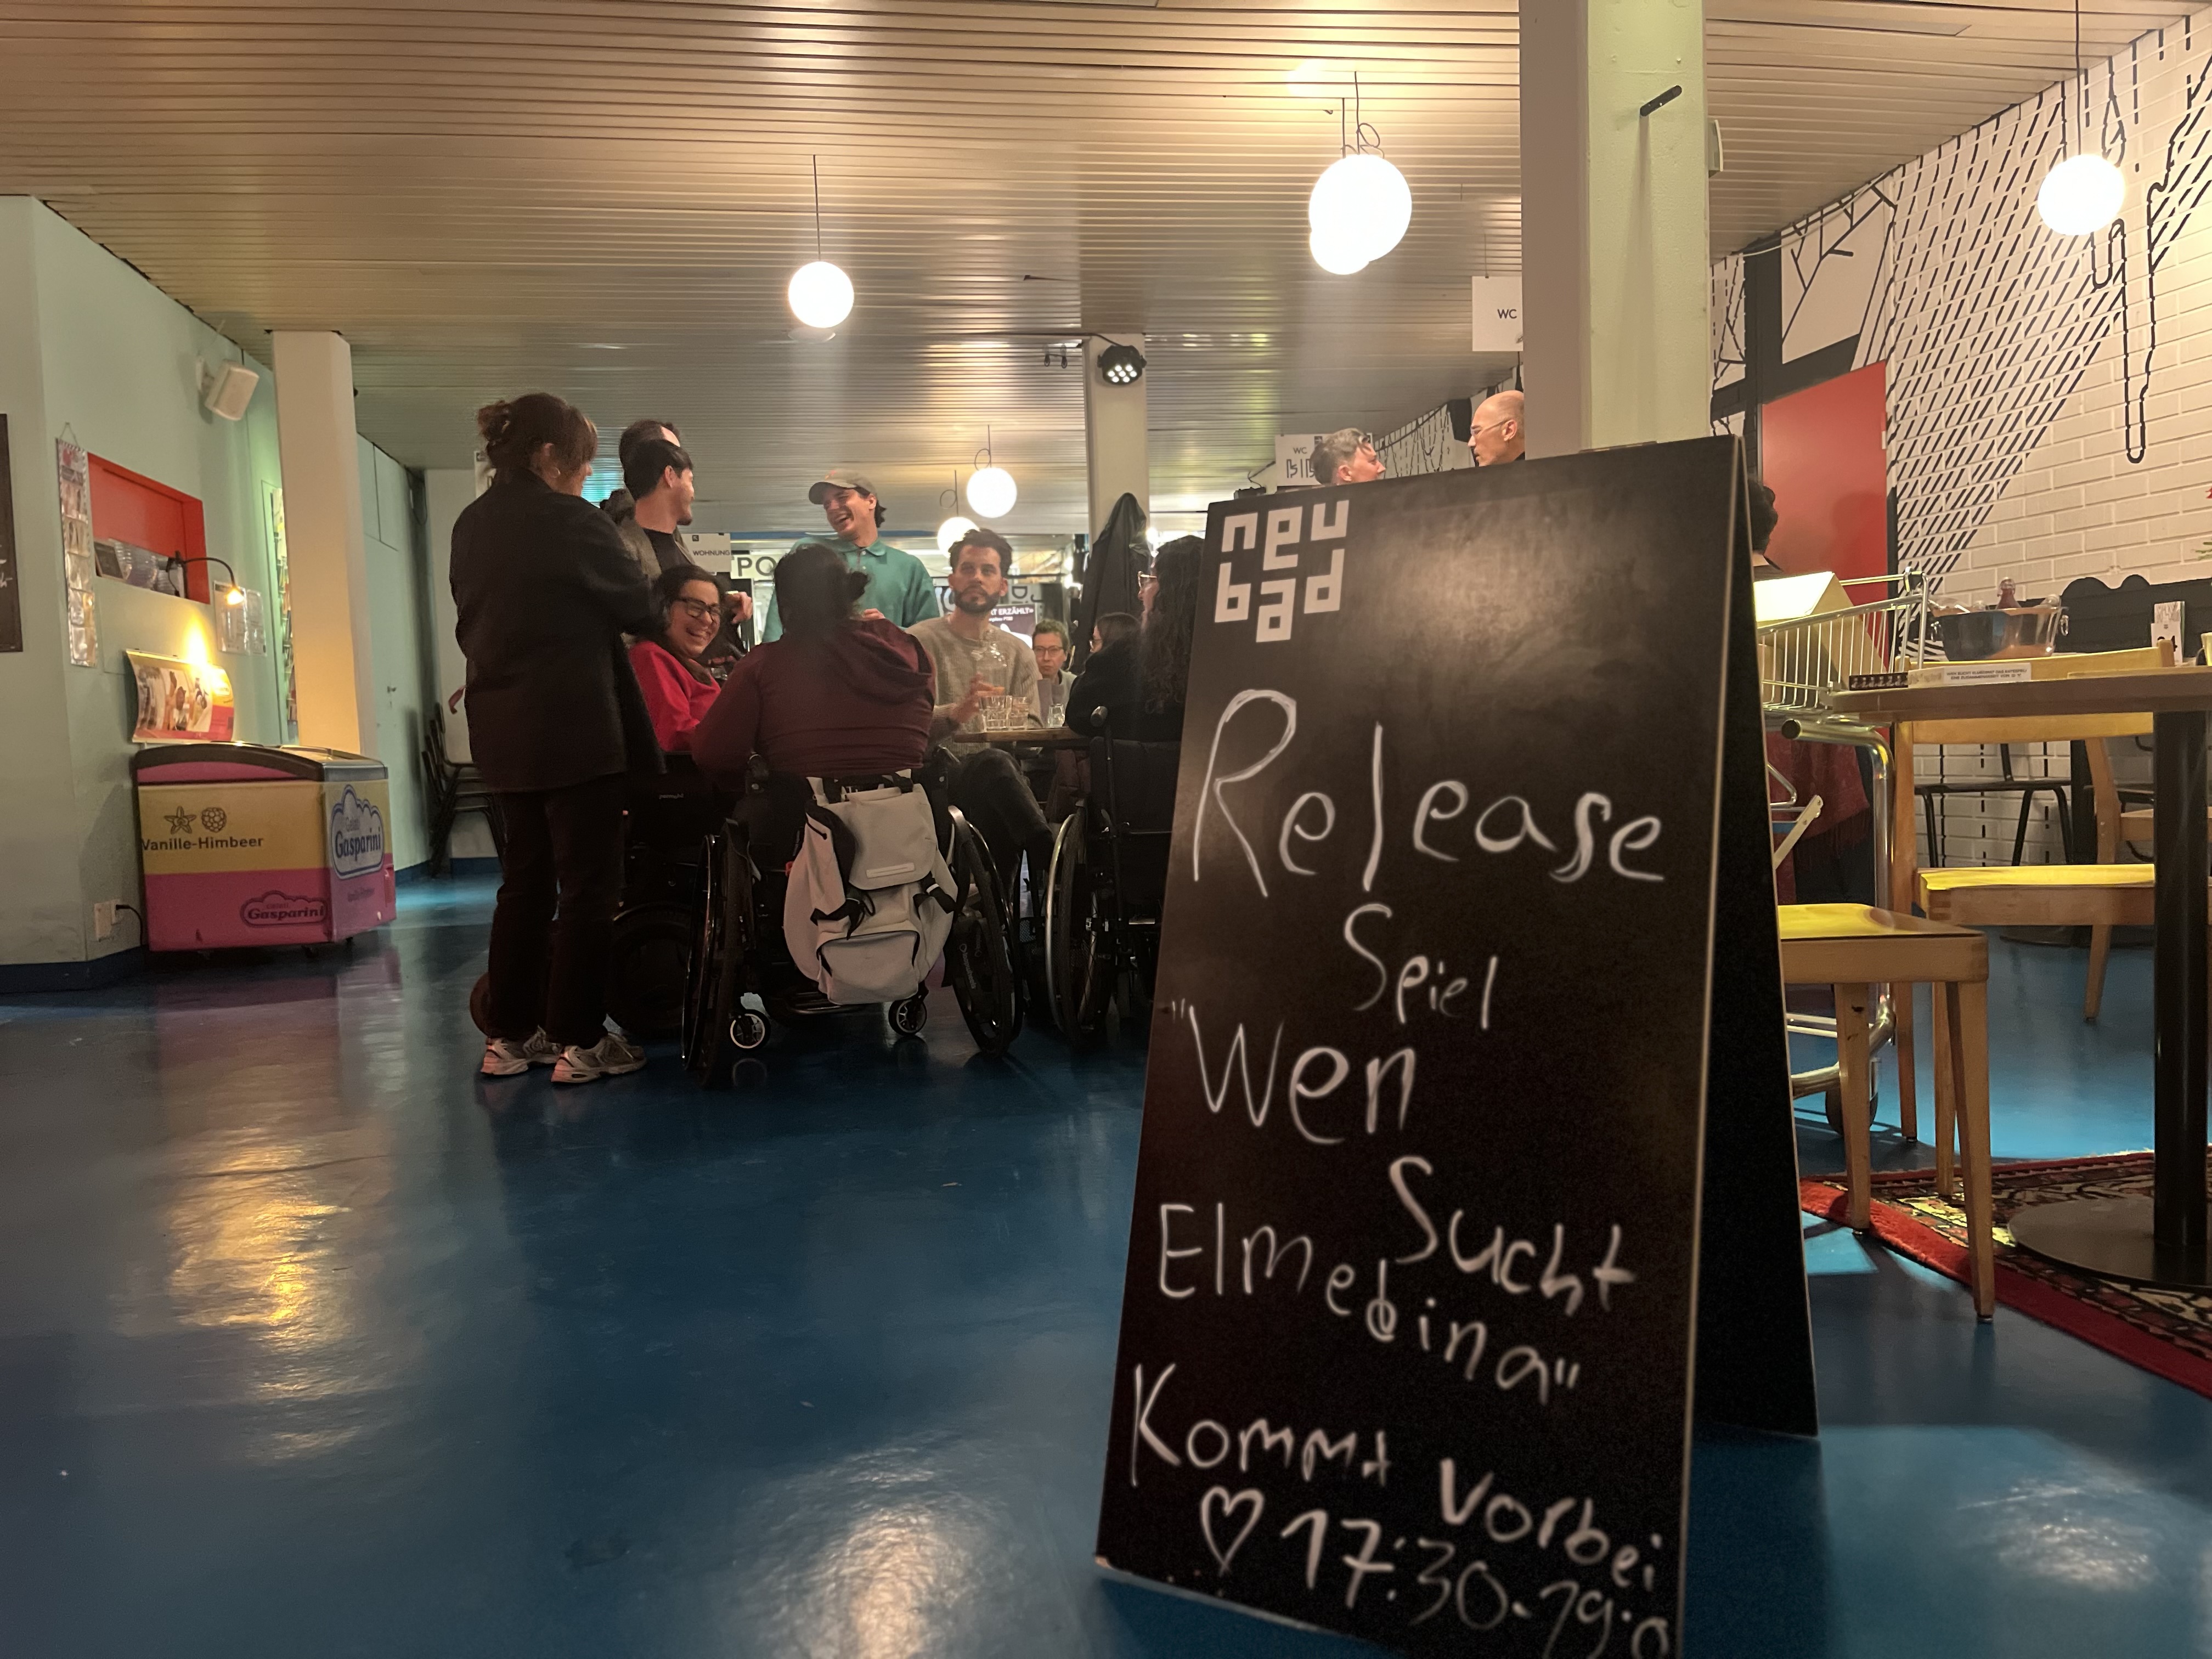 neu
bad
Release
Spiel
"Wen
Sucht
Elmedina"
Kommt vorbei
♡ 17:30-19:0
WC
WC
WOHNUNG
PO
T ERZÄHLT»
Vanille-Himbeer
Gasparini
Gasparini